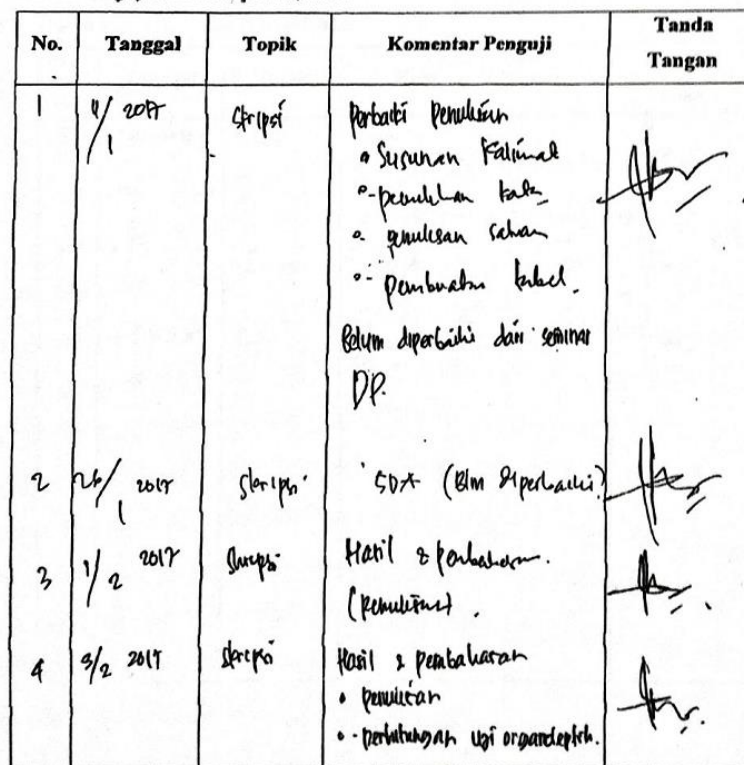 No. Tanggal Topik Komentar Penguji Tanda Tangan
1 11/1 2017 Skripsi Perbaiki Penulisan
• Susunan Kalimat
- pemilihan kata
• penulisan
- pembuatan tabel.
Belum diperbaiki dari seminar
DP.
2 26/1 2017 Skripsi SDA (Blm diperbaiki)
3 1/2 2017 Skripsi Hasil & pembahasan.
(Penulisan).
4 3/2 2017 Skripsi Hasil & pembahasan
• penulisan
- perhitungan uji organoleptik.